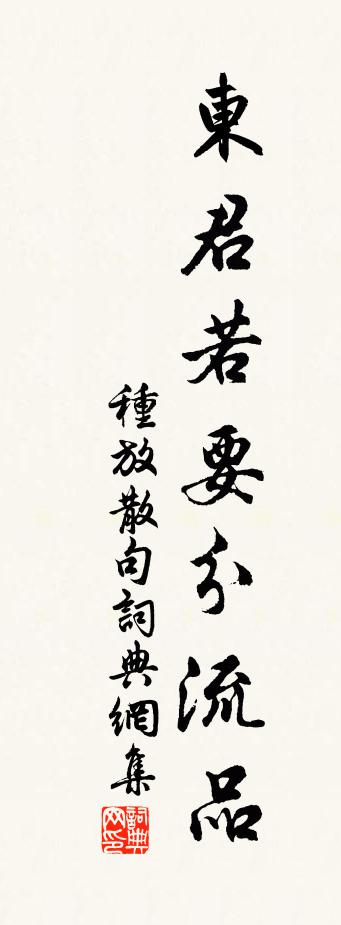 東君若要分流品
種放散句詞典網集
詞典
网印